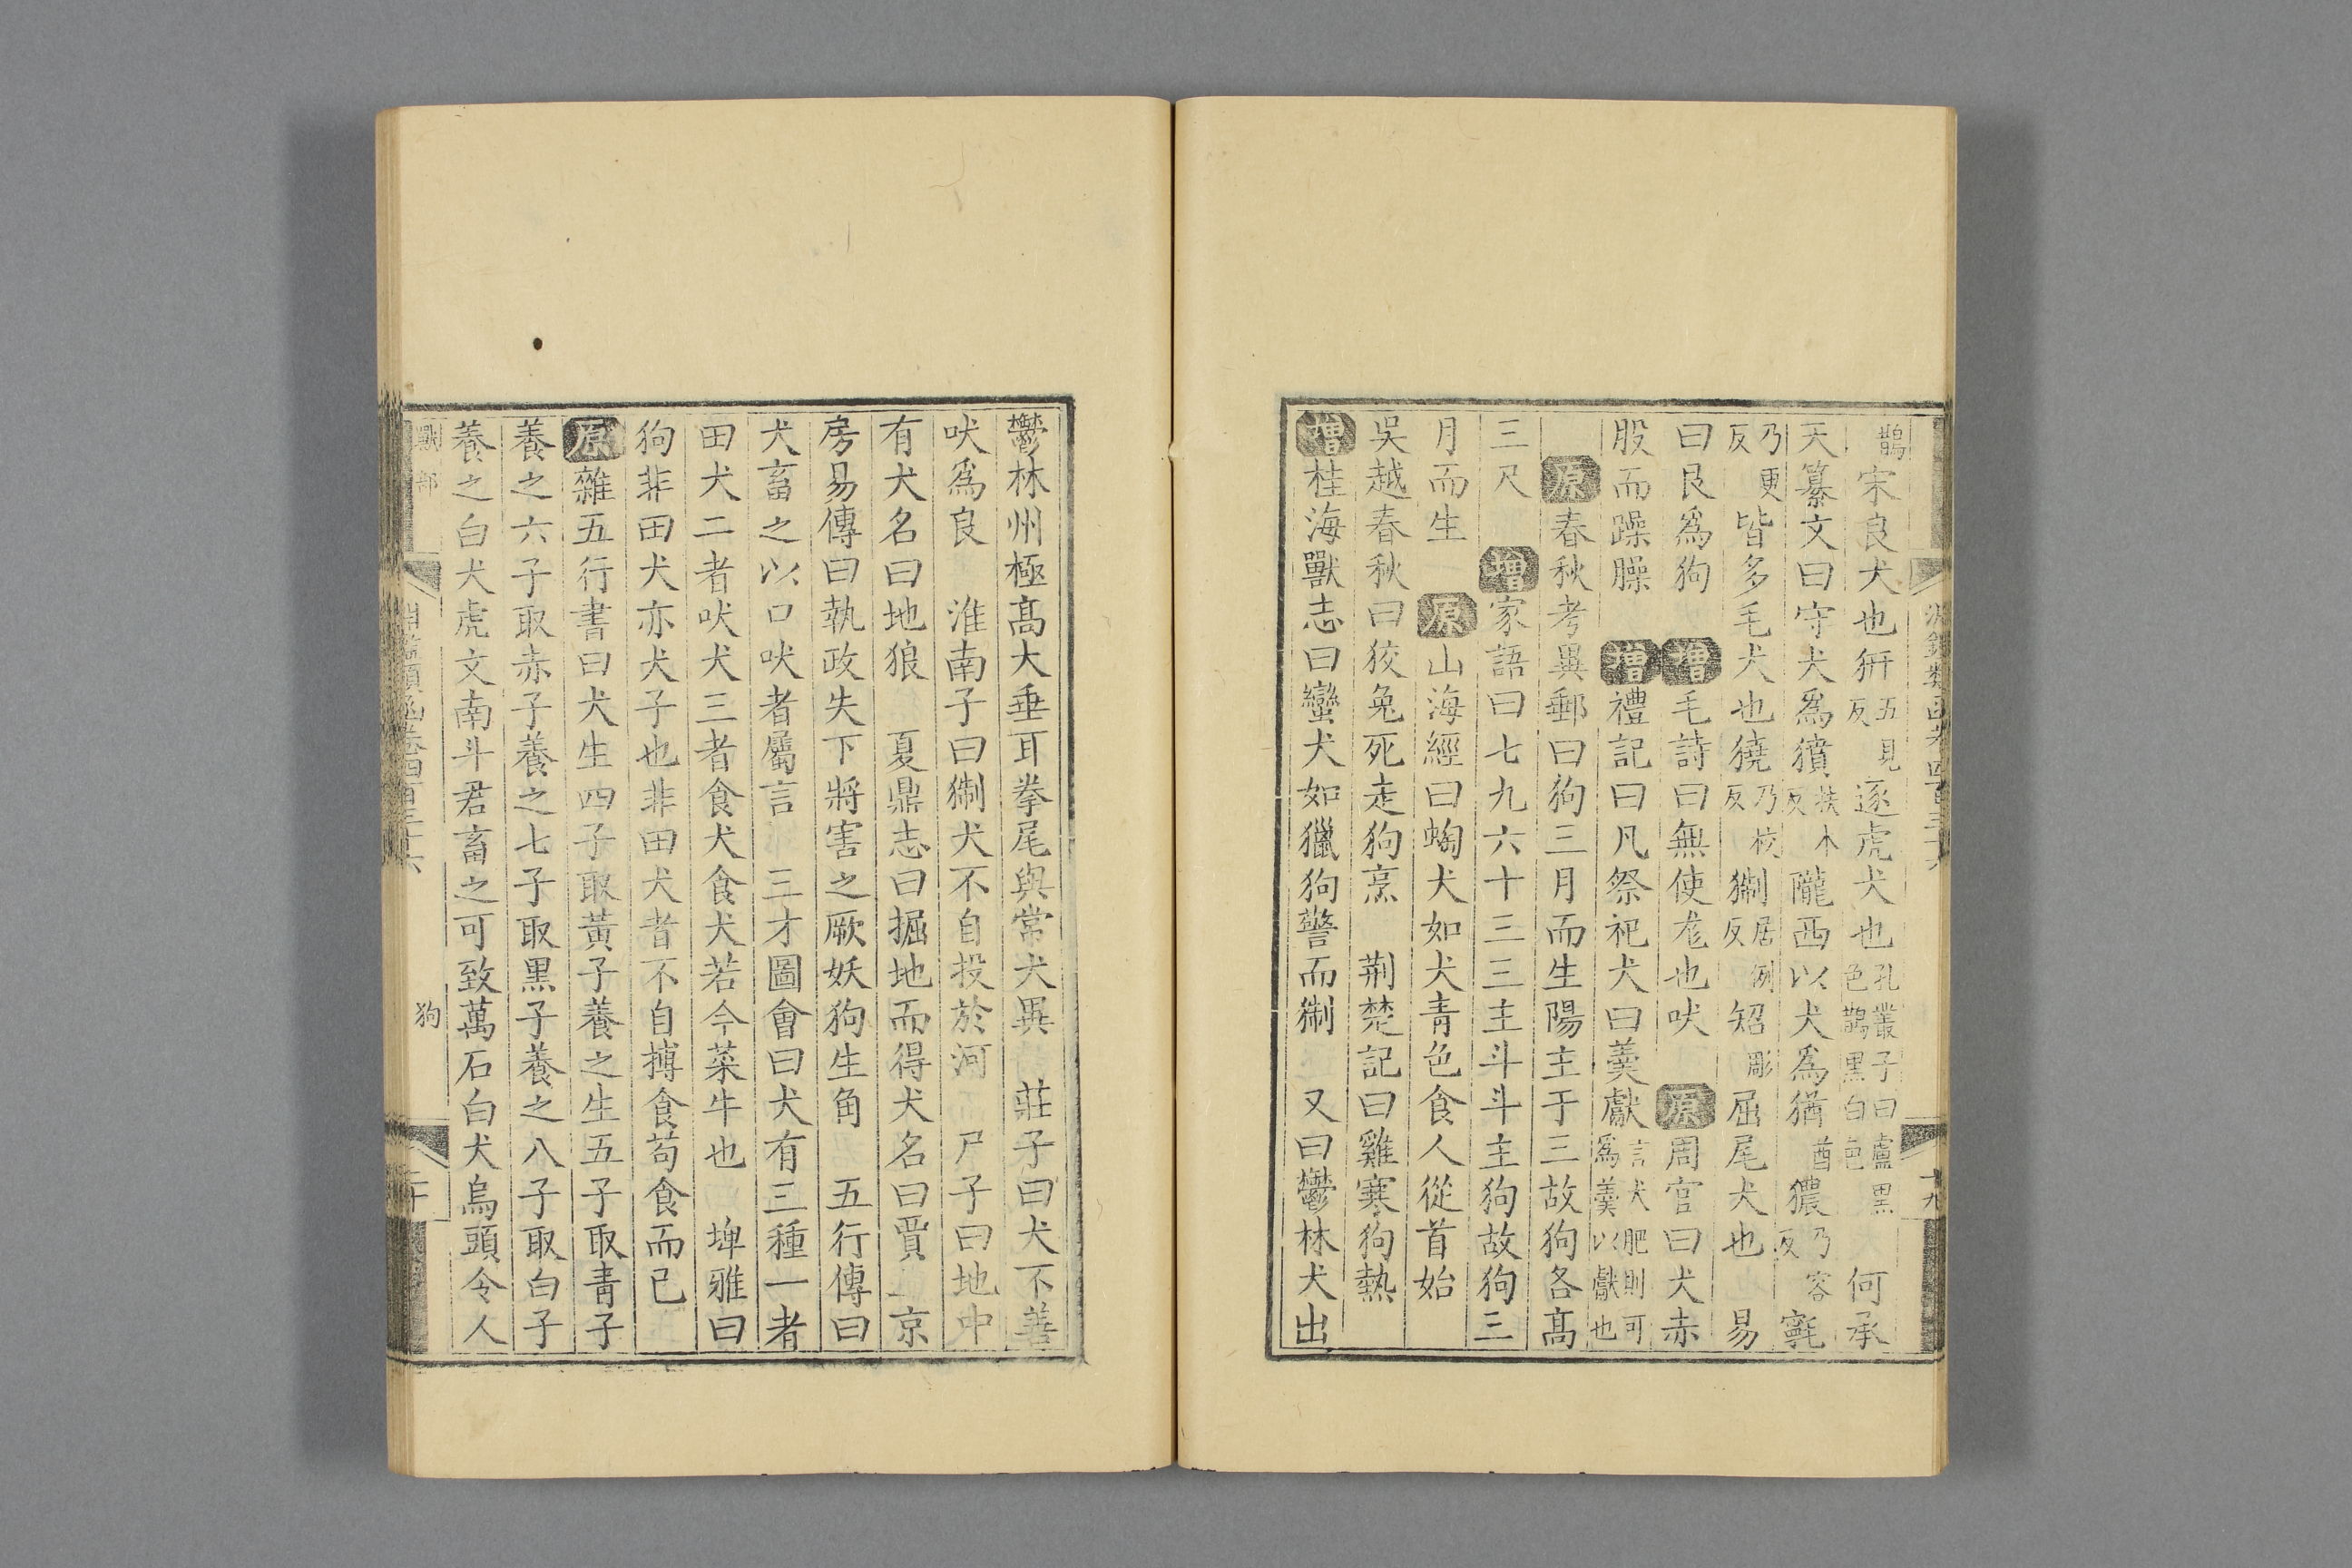 淵鑑類函卷四百三十六 十九
鵲宋良犬也犴五見反逐虎犬也孔叢子曰盧黑色鵲黑白色 何承
天纂文曰守犬爲獖扶本反隴西以犬爲猶酋獽乃容反
乃更反皆多毛犬也獟乃校反猘居例反㹦彫屈尾犬也 易
曰艮爲狗 增毛詩曰無使尨也吠 原周官曰犬赤
股而躁臊 增禮記曰凡祭祀犬曰羹獻言犬肥則可爲羹以獻也
原春秋考異郵曰狗三月而生陽主于三故狗各高
三尺 增家語曰七九六十三三主斗斗主狗故狗三
月而生 原山海經曰蜪犬如犬青色食人從首始
吳越春秋曰狡兔死走狗烹 荆楚記曰雞寒狗熱
增桂海獸志曰蠻犬如獵狗警而猘 又曰鬱林犬出
鬱林州極高大垂耳拳尾與常犬異 莊子曰犬不善
吠爲良 淮南子曰猘犬不自投於河 尸子曰地中
有犬名曰地狼 夏鼎志曰掘地而得犬名曰賈 京
房易傳曰執政失下將害之厥妖狗生角 五行傳曰
犬畜之以口吠者屬言 三才圖會曰犬有三種一者
田犬二者吠犬三者食犬食犬若今菜牛也 埤雅曰
狗非田犬亦犬子也非田犬者不自搏食苟食而已
原雜五行書曰犬生四子取黃子養之生五子取青子
養之六子取赤子養之七子取黑子養之八子取白子
養之白犬虎文南斗君畜之可致萬石白犬烏頭令人
獸部 淵鑑類函卷四百三十六 狗 二十